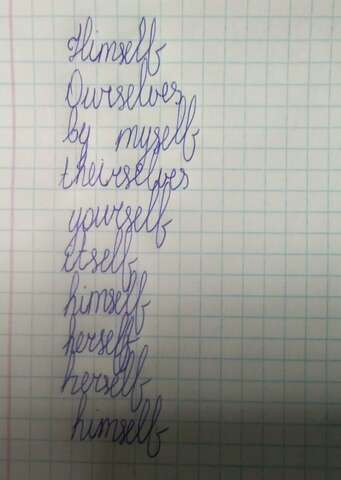 Himself
Ourselves
by myself
theirselves
yourself
itself
himself
herself
herself
himself